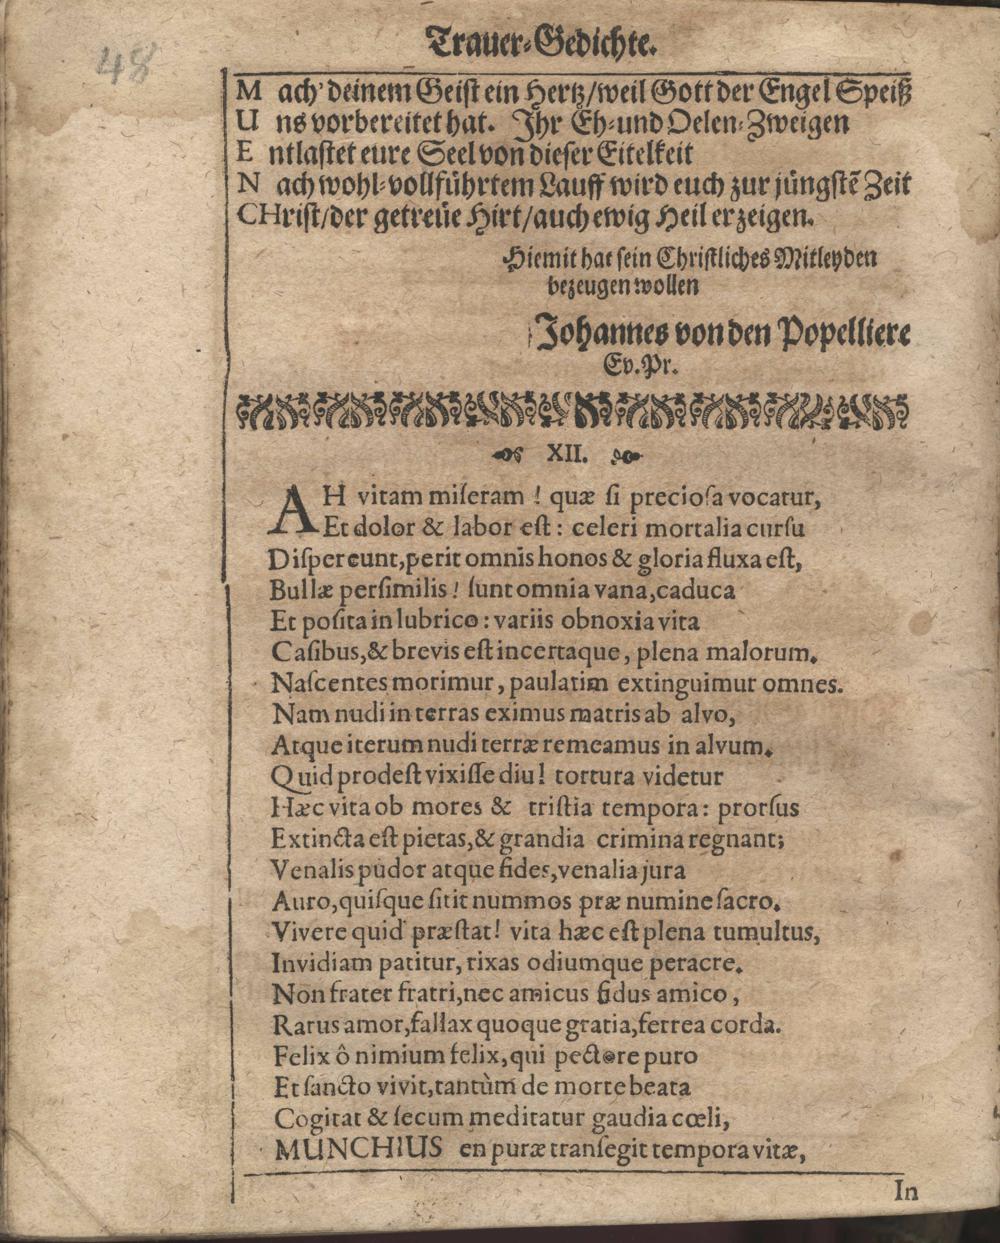 48
Trauer-Gedichte.
M ach' deinem Geist ein Hertz/weil Gott der Engel Speiß
U ns vorbereitet hat. Ihr Eh-und Oelen-Zweigen
E ntlastet eure Seel von dieser Eitelkeit
N ach wohl-vollführtem Lauff wird euch zur jüngstẽ Zeit
CHrist/der getreue Hirt/auch ewig Heil erzeigen.
Hiemit hat sein Christliches Mitleyden
bezeugen wollen
Johannes von den Popelliere
Ev. Pr.
XII.
AH vitam miſeram ! quæ ſi precioſa vocatur,
Et dolor & labor eſt : celeri mortalia curſu
Diſpereunt, perit omnis honos & gloria fluxa eſt,
Bullæ perſimilis ! ſunt omnia vana, caduca
Et poſita in lubrico : variis obnoxia vita
Caſibus, & brevis eſt incertaque, plena malorum.
Naſcentes morimur, paulatim extinguimur omnes.
Nam nudi in terras eximus matris ab alvo,
Atque iterum nudi terræ remeamus in alvum.
Quid prodeſt vixiſſe diu! tortura videtur
Hæc vita ob mores & triſtia tempora: prorſus
Extincta eſt pietas, & grandia crimina regnant;
Venalis pudor atque fides, venalia jura
Auro, quiſque ſitit nummos præ numine ſacro.
Vivere quid præſtat! vita hæc eſt plena tumultus,
Invidiam patitur, rixas odiumque peracre.
Non frater fratri, nec amicus fidus amico,
Rarus amor, fallax quoque gratia, ferrea corda.
Felix ô nimium felix, qui pectore puro
Et ſancto vivit, tantùm de morte beata
Cogitat & ſecum meditatur gaudia cœli,
MUNCHIUS en puræ tranſegit tempora vitæ,
In